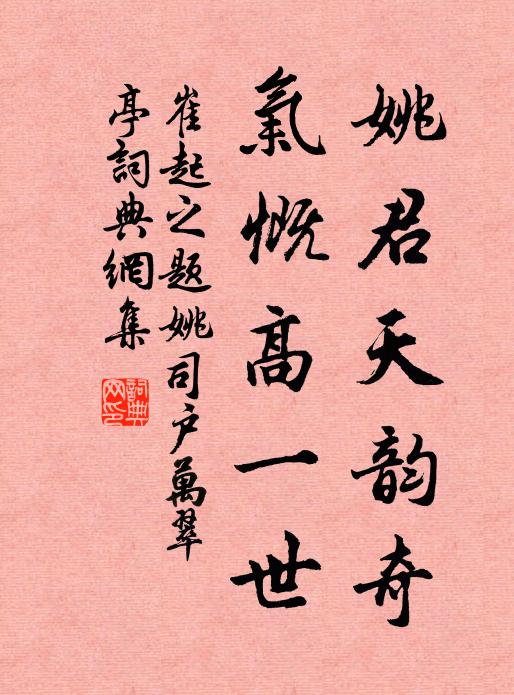 姚君天韵奇
氣慨高一世
崔起之题姚司户萬翠
亭詞典網集
詞典网印